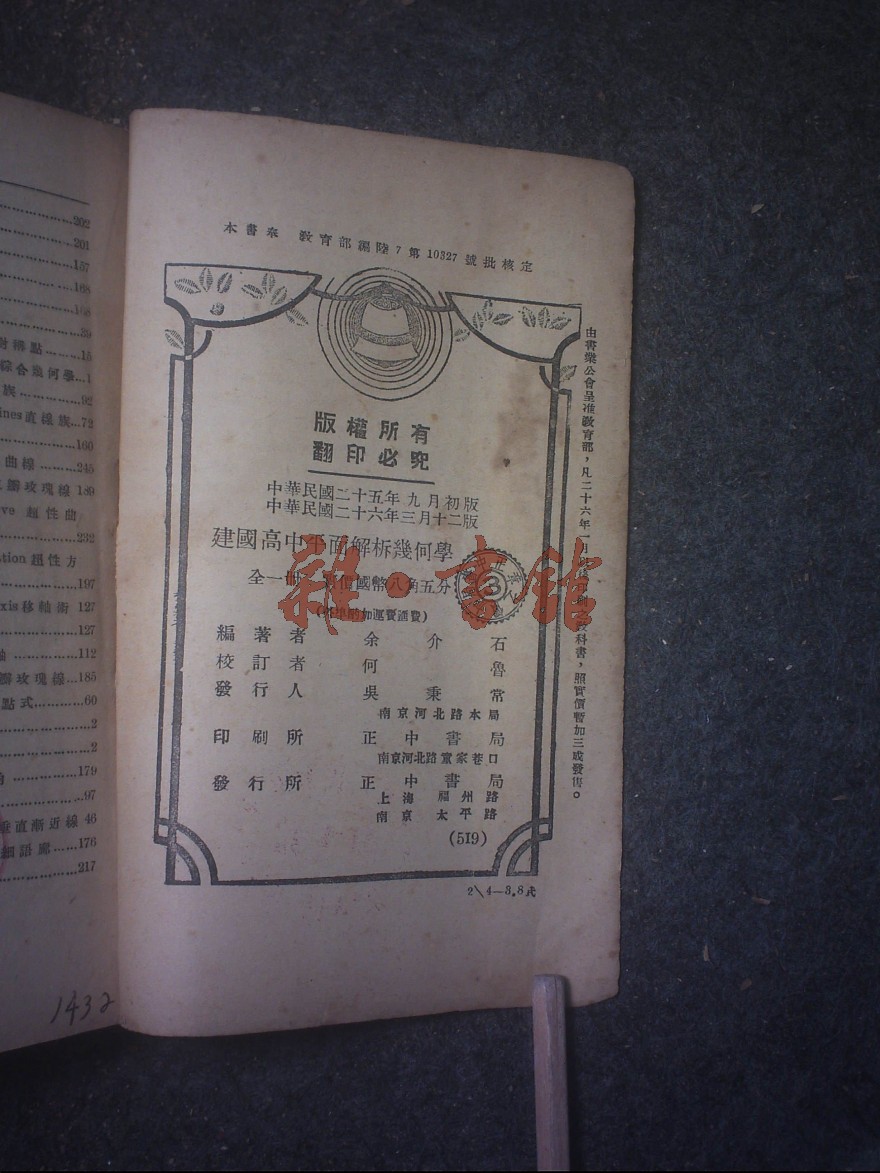 202
201
157
168
39
對稱點 15
綜合幾何學 1
族 92
ines直線族 72
160
曲線 245
瓣玫瑰線 189
ve 超性曲
232
tion超性方
197
xis移軸術 127
127
軸 112
瓣玫瑰線 185
點式 60
2
2
179
97
垂直漸近線 46
語廊 176
217
1432
本書奉 教育部編陸7第10327號批核定
版權所有
翻印必究
中華民國二十五年九月初版
中華民國二十六年三月十二版
建國高中平面解析幾何學
全一冊 價國幣八角五分
加運費匯費)
編著者 余介石
校訂者 何魯
發行人 吳秉常
南京河北路本局
印刷所 正中書局
南京河北路童家巷口
發行所 正中書局
上海福州路
南京太平路
(519)
2\4—3.8式
由書業公會呈准教育部，凡二十六年一月 教科書，照實價暫加三成發售。
雜·書館
3